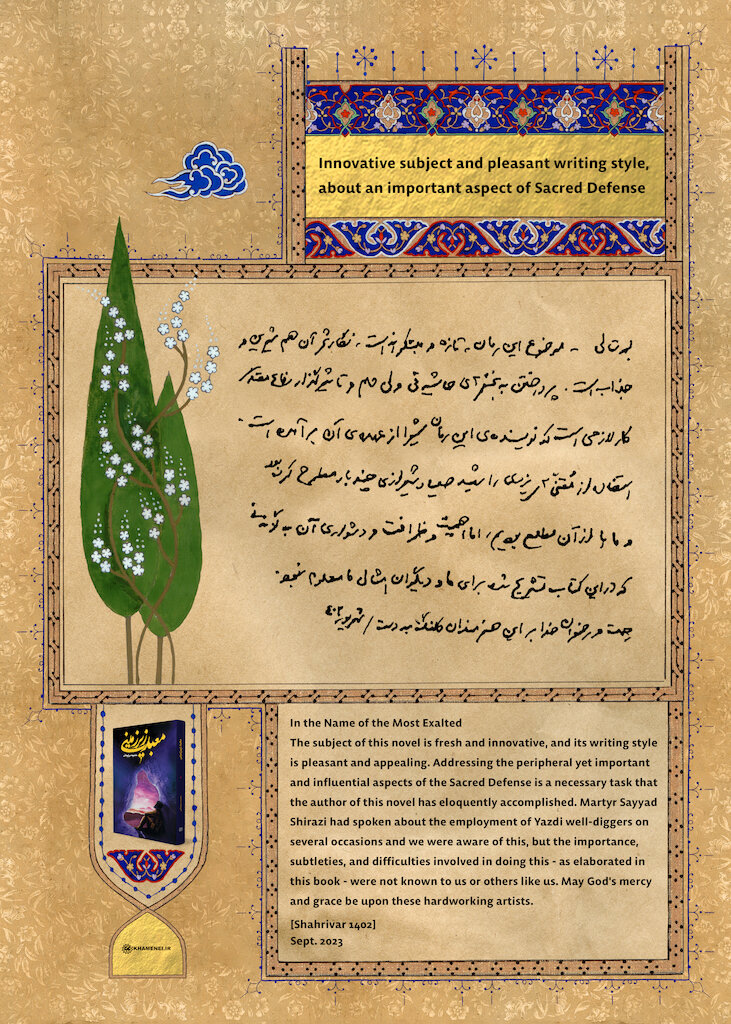 Innovative subject and pleasant writing style,
about an important aspect of Sacred Defense
موضوع این رمان، تازه و مبتکرانه است، نگارش آن هم شیرین و
جذاب است. پرداختن به بخش‌های حاشیه‌ئی ولی مهم و تأثیرگذار دفاع مقدس
کار لازمی است که نویسنده‌ی این رمان شیوا از عهده‌ی آن برآمده است.
استفاده از مقنّی‌های یزدی را شهید صیاد شیرازی چند بار مطرح کرده بود
و ما با از آن مطلع بودیم، اما اهمیت و ظرافت و دشواری آن به گونه‌ئی
که در این کتاب تشریح شده برای ما و دیگران امثال ما معلوم نبود.
رحمت و رضوان خدا بر این هنرمندان کلنگ به دست / شهریور ۱۴۰۲
معبد زیرزمینی
In the Name of the Most Exalted
The subject of this novel is fresh and innovative, and its writing style
is pleasant and appealing. Addressing the peripheral yet important
and influential aspects of the Sacred Defense is a necessary task that
the author of this novel has eloquently accomplished. Martyr Sayyad
Shirazi had spoken about the employment of Yazdi well-diggers on
several occasions and we were aware of this, but the importance,
subtleties, and difficulties involved in doing this - as elaborated in
this book - were not known to us or others like us. May God's mercy
and grace be upon these hardworking artists.
[Shahrivar 1402]
Sept. 2023
KHAMENEI.IR